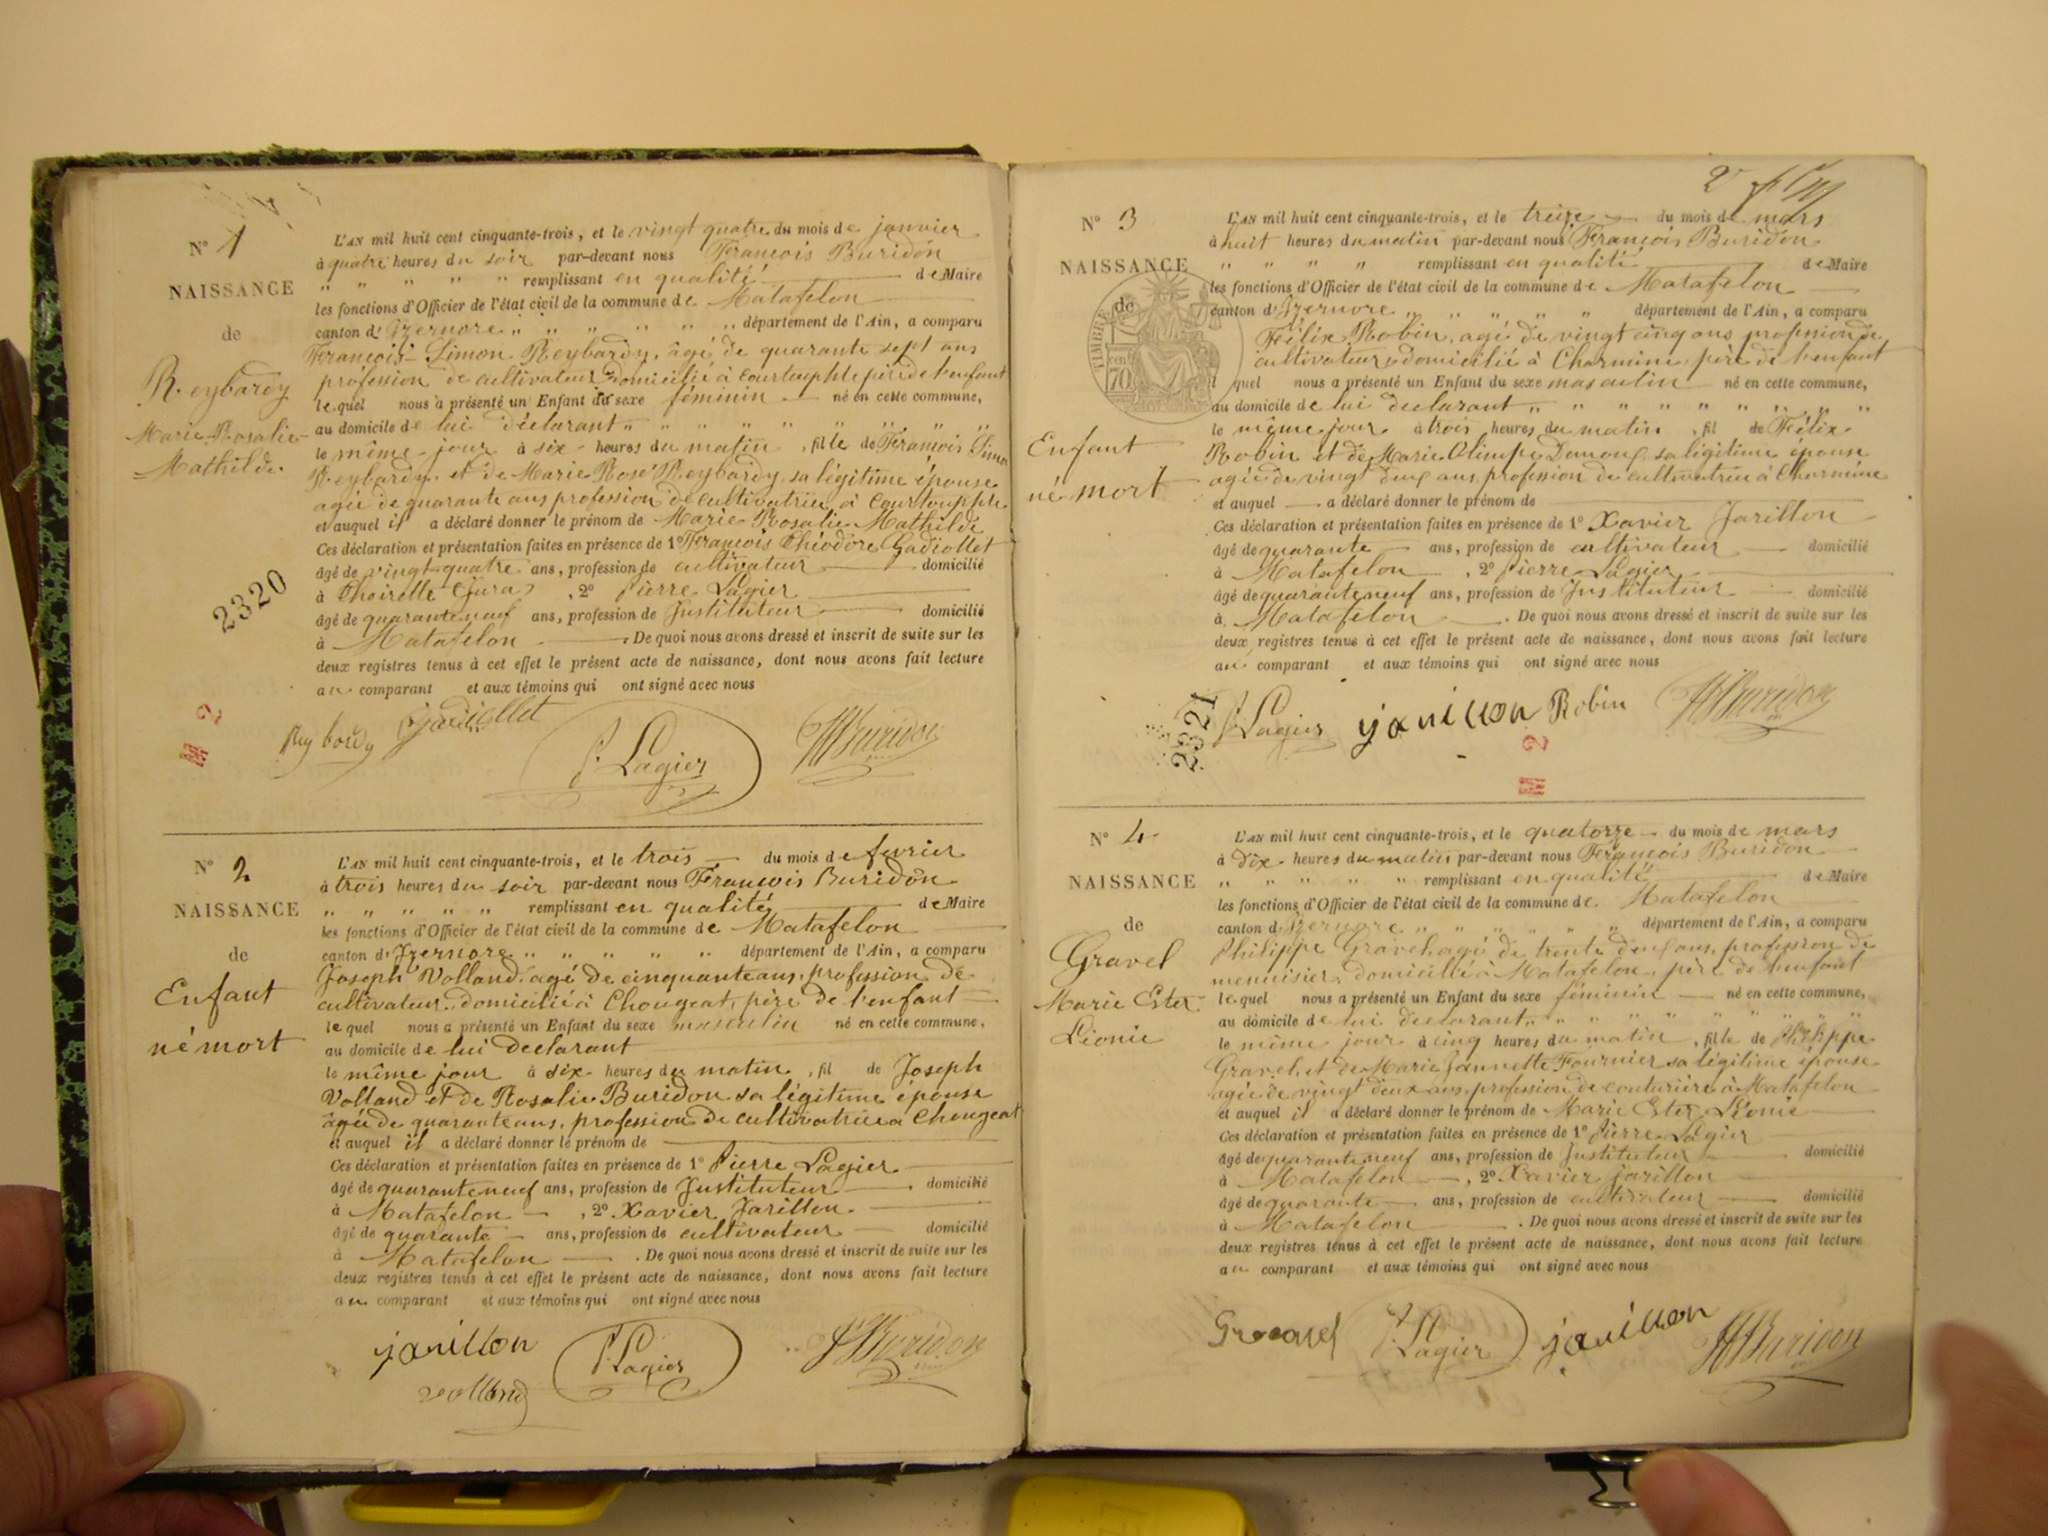 N° 1
NAISSANCE
de
Reybardy
Marie Rosalie
Mathilde
L'AN mil huit cent cinquante-trois, et le vingt quatre du mois de janvier
à quatre heures du soir par-devant nous François Buridon
" " " " " remplissant en qualité de Maire
les fonctions d'Officier de l'état civil de la commune de Matafelon
canton d'Izernore " " " " " " département de l'Ain, a comparu
François-Simon Reybardy, âgé de quarante sept ans
profession de cultivateur domicilié à Courtouphle père de l'enfant
lequel nous a présenté un Enfant du sexe féminin né en cette commune,
au domicile de lui déclarant " " " " " " " "
le même jour à six heures du matin, fille de François Simon
Reybardy, et de Marie Rose Reybardy sa légitime épouse
agée de quarante ans profession de cultivatrice à Courtouphle
et auquel il a déclaré donner le prénom de Marie Rosalie Mathilde
Ces déclaration et présentation faites en présence de 1° François Théodore Gadiollet
âgé de vingt quatre ans, profession de cultivateur domicilié
à Thoirette (Jura) , 2° Pierre Lagier
âgé de quarante neuf ans, profession de Instituteur domicilié
à Matafelon . De quoi nous avons dressé et inscrit de suite sur les
deux registres tenus à cet effet le présent acte de naissance, dont nous avons fait lecture
au comparant et aux témoins qui ont signé avec nous
2320
M 2
Reybardy Gadiollet P. Lagier Buridon
N° 2
NAISSANCE
de
Enfant
né mort
L'AN mil huit cent cinquante-trois, et le trois du mois de fevrier
à trois heures du soir par-devant nous François Buridon
" " " " " remplissant en qualité de Maire
les fonctions d'Officier de l'état civil de la commune de Matafelon
canton d'Izernore " " " " " département de l'Ain, a comparu
Joseph Volland, agé de cinquante ans, profession de
cultivateur domicilié à Chougeat, père de l'enfant
lequel nous a présenté un Enfant du sexe masculin né en cette commune,
au domicile de lui declarant
le même jour à six heures du matin, fil de Joseph
Volland et de Rosalie Buridon sa légitime épouse
âgée de quarante ans, profession de cultivatrice à Chougeat
et auquel il a déclaré donner le prénom de
Ces déclaration et présentation faites en présence de 1° Pierre Lagier
âgé de quarante neuf ans, profession de Instituteur domicilié
à Matafelon , 2° Xavier Jarillon
âgé de quarante ans, profession de cultivateur domicilié
à Matafelon . De quoi nous avons dressé et inscrit de suite sur les
deux registres tenus à cet effet le présent acte de naissance, dont nous avons fait lecture
au comparant et aux témoins qui ont signé avec nous
jarillon P. Lagier Buridon
volland
N° 3
NAISSANCE
de
TIMBRE
70
Enfant
né mort
L'AN mil huit cent cinquante-trois, et le treize du mois de mars
à huit heures du matin par-devant nous François Buridon
" " " " remplissant en qualité de Maire
les fonctions d'Officier de l'état civil de la commune de Matafelon
canton d'Izernore " " " " " département de l'Ain, a comparu
Félix Robin, agé de vingt cinq ans profession de
cultivateur domicilié à Charmine père de l'enfant
l quel nous a présenté un Enfant du sexe masculin né en cette commune,
au domicile de lui declarant " " " " " " " " "
le même jour à trois heures du matin, fil de Félix
Robin et de Marie Olimpe sa légitime épouse
agée de vingt deux ans, profession de cultivatrice à Charmine
et auquel a déclaré donner le prénom de
Ces déclaration et présentation faites en présence de 1° Xavier Jarillon
âgé de quarante ans, profession de cultivateur domicilié
à Matafelon , 2° Pierre Lagier
âgé de quarante neuf ans, profession de Instituteur domicilié
à Matafelon . De quoi nous avons dressé et inscrit de suite sur les
deux registres tenus à cet effet le présent acte de naissance, dont nous avons fait lecture
au comparant et aux témoins qui ont signé avec nous
2321
P. Lagier jarillon Robin Buridon
M 2
N° 4
NAISSANCE
de
Gravel
Marie Ester
Léonie
L'AN mil huit cent cinquante-trois, et le quatorze du mois de mars
à dix heures du matin par-devant nous François Buridon
" " " " " remplissant en qualité de Maire
les fonctions d'Officier de l'état civil de la commune de Matafelon
canton d'Izernore " " " " " département de l'Ain, a comparu
Philippe Gravel, agé de trente deux ans, profession de
menuisier, domicilié à Matafelon, père de l'enfant
lequel nous a présenté un Enfant du sexe féminin né en cette commune,
au domicile de lui declarant " " " " " " " "
le même jour à cinq heures du matin, fille de Philippe
Gravel, et de Marie Jannette Fournier sa légitime épouse
agée de vingt deux ans, profession de couturière à Matafelon
et auquel il a déclaré donner le prénom de Marie Ester Léonie
Ces déclaration et présentation faites en présence de 1° Pierre Lagier
âgé de quarante neuf ans, profession de Instituteur domicilié
à Matafelon , 2° Xavier jarillon
âgé de quarante ans, profession de cultivateur domicilié
à Matafelon . De quoi nous avons dressé et inscrit de suite sur les
deux registres tenus à cet effet le présent acte de naissance, dont nous avons fait lecture
au comparant et aux témoins qui ont signé avec nous
Gravel P. Lagier jarillon Buridon